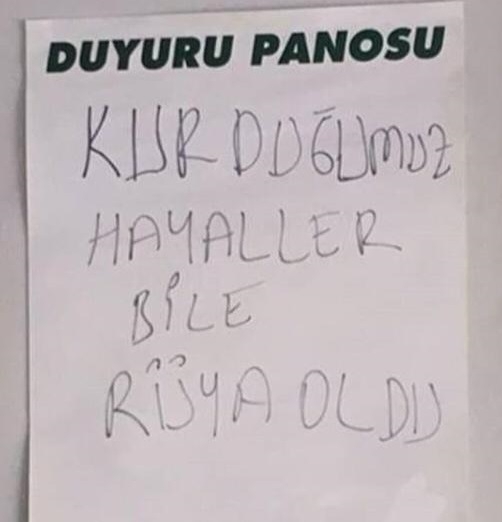 DUYURU PANOSU
KURDUĞUMUZ
HAYALLER
BİLE
RÜYA OLDU